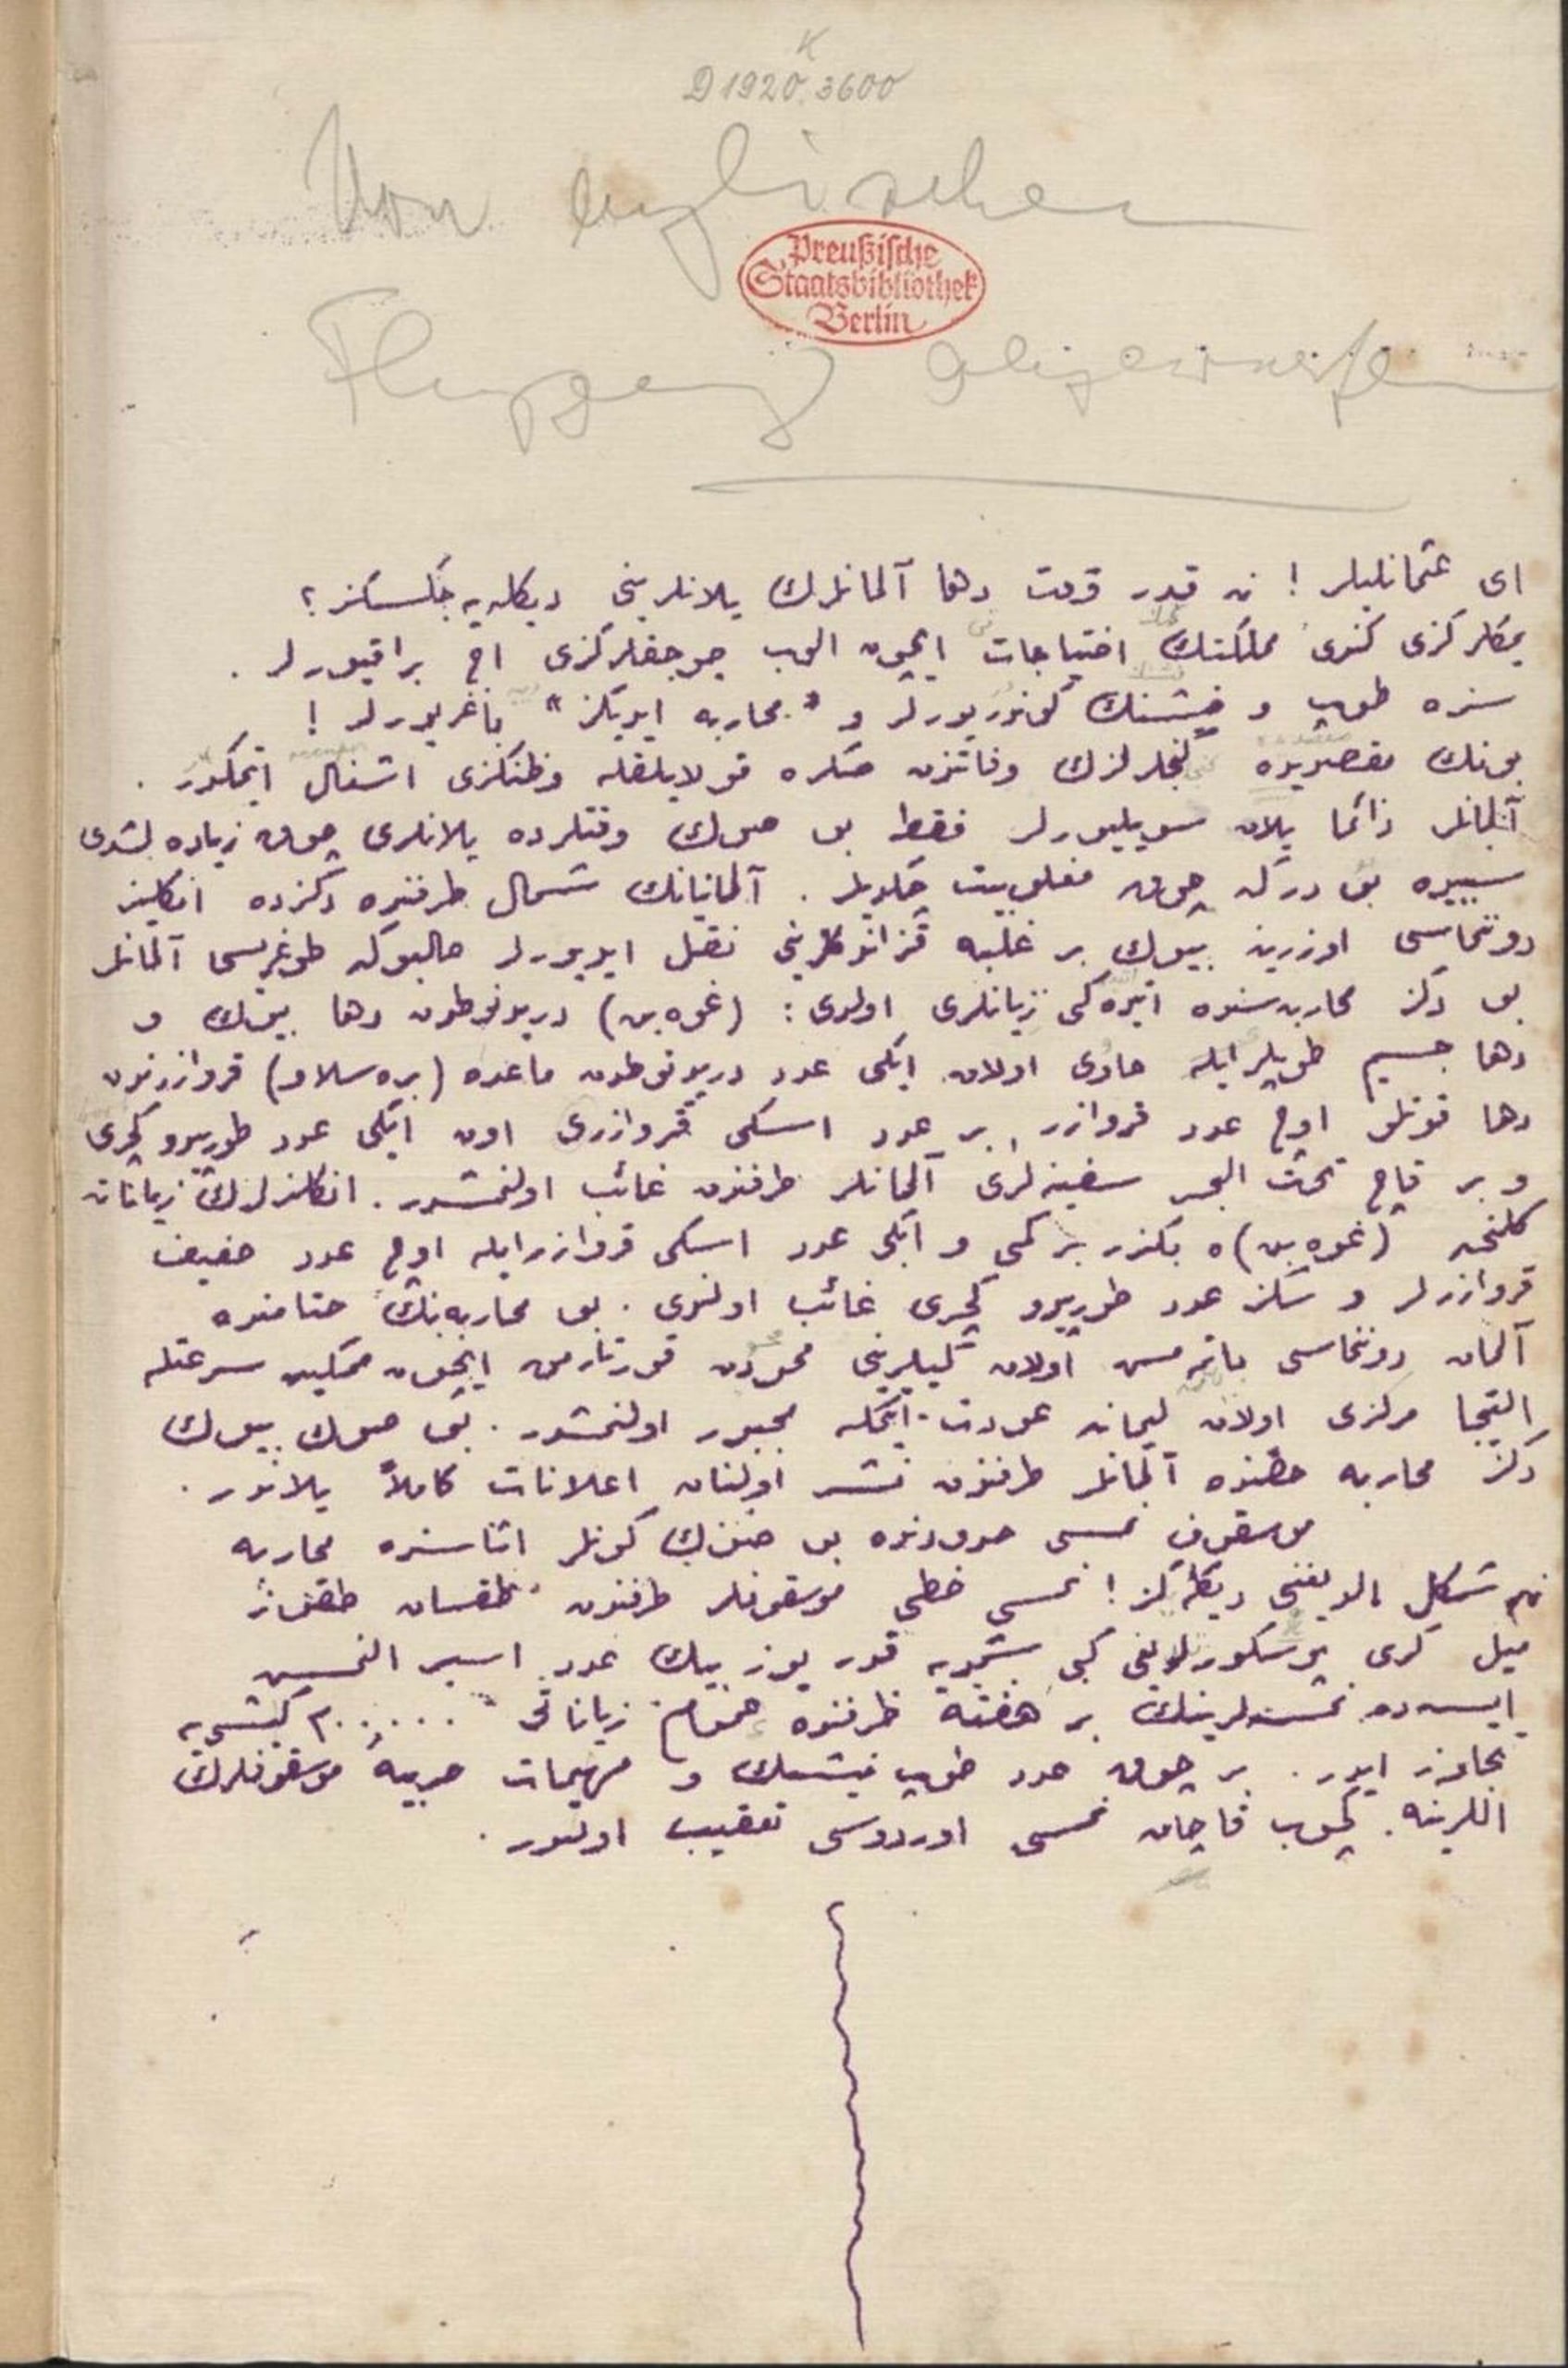 D 1920. 3600
Von englischen
Preußische
Staatsbibliothek
Berlin
Flugzeug abgeworfen
ای عثمانلیلر ! نه قدر وقت دها آلمانلرك یلانلرینی دیكله‌یه جكسكز ؟
یمكلركزی كندی مملكتك احتیاجات ایچون الوب چوجقلركزی اچ براقیورلر .
سزه طوپ و فشنك كوندریورلر و " محاربه ایدیكز " باغریورلر !
بونك مقصدیده كنجلرلرك وفاتندن صكره قولایلقله وطنكزی اشغال اتمكدر .
آلمانلر دائما یلان سویلیورلر فقط بو صوك وقتلرده یلانلری چوق زیاده لشدی
سببیده بودركه چوق مغلوبیت چكدیلر . آلمانیانك شمال طرفنده دكزده انكلیز
دوننماسی اوزرینه بیوك بر غلبه قزاندقلرینی نقل ایدیورلر حالبوكه طوغریسی آلمانلر
بو دكز محاربه‌سنده اتیده‌كی زیانلری اولدی : (غوه‌بن) دریدنوطدن دها بیوك و
دها جسیم طوپلر ایله حاوی اولان ایكی عدد دریدنوطدن ماعده (بره‌سلاو) قروازرندن
دها قوتلو اوچ عدد قروازر , بر عدد اسكی قروازری اون ایكی عدد طورپیدو كچری
و بر قاچ تحت البحر سفینه‌لری آلمانلر طرفندن غائب اولنمشدر . انكلیزلرك زیاناته
كلنجه (غوه‌بن)ه بكزر بر كمی و ایكی عدد اسكی قروازر ایله اوچ عدد خفیف
قروازرلر و سكز عدد طورپیدو كچری غائب اولندی . بو محاربه‌نك ختامنده
آلمان دوننماسی باتمه‌مش اولان كمیلرینی محودن قورتارمق ایچون ممكین سرعتله
التجا مركزی اولان لیمانه عودت ایتمكه مجبور اولنمشدر . بو صوك بیوك
دكز محاربه حقنده آلمانلر طرفندن نشر اولنان اعلانات كاملاً یلاندر .
موسقوف نمسه حدودنده بو صوك كونلر اثناسنده محاربه
نه شكل الدیغنی دیكله‌كز ! نمسه خطی موسقوفلر طرفندن طقسان طقوز
میل كری پوسكورلدیغی كبی شمدیه قدر یوز بیك عدد اسیر النمش
ایسه‌ده نمسه‌لرینك بر هفته ظرفنده عموم زیاناتی ۲۰۰۰۰۰ كیشیه
تجاوز ایدر . بر چوق عدد طوپ فشنك و مهمات حربیه موسقوفلرك
اللرینه كچوب قاچان نمسه اوردوسی تعقیب اولنور .